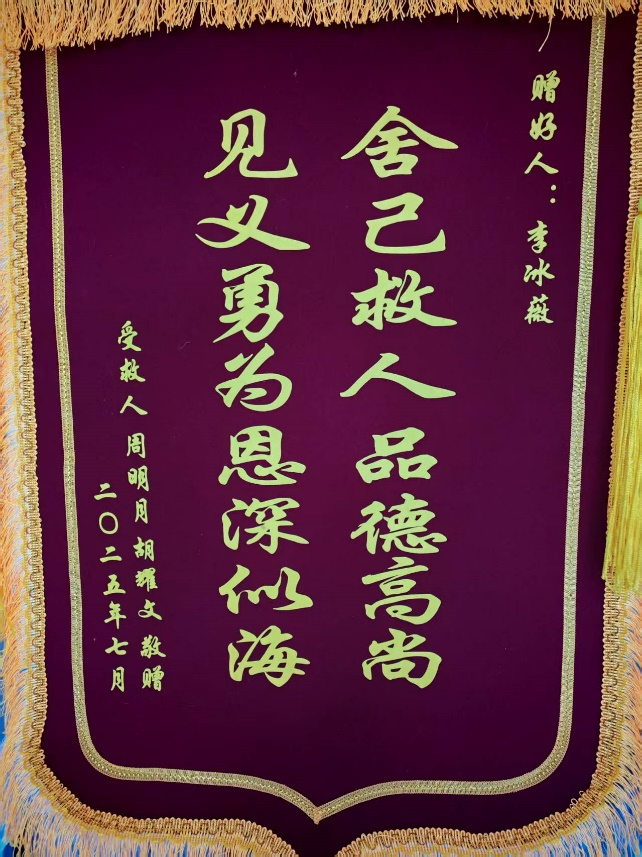 赠好人：李冰薇
舍己救人品德高尚
见义勇为恩深似海
受救人 周明月 胡耀文 敬赠
二〇二五年七月